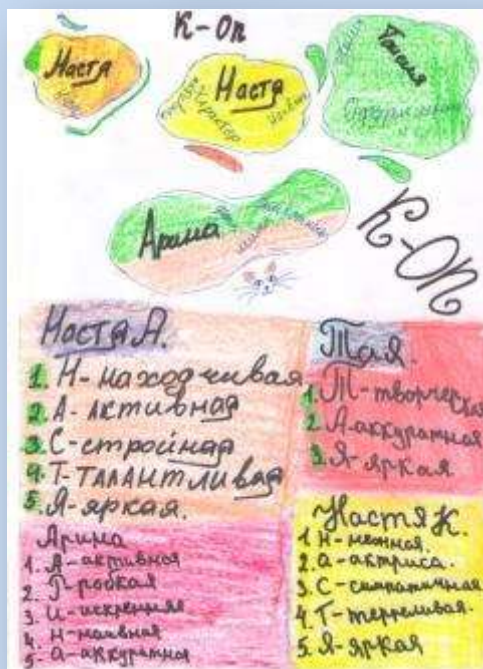 К-Оп
Настя
Настя
Характер
Таисия
Арина
К-Оп
Настя А.
1. Н-находчивая
2. А-Активная
3. С-стройная
4. Т-ТАЛАНТЛИВАЯ
5. Я-яркая.
Тая.
1. Т-творческая
2. А-аккуратная
3. Я-яркая
Арина
1. А-активная
2. Р-робкая
3. И-искренняя
4. Н-наивная
5. А-аккуратная
Настя К.
1 Н-нежная.
2. а-актриса.
3. С-симпатичная
4. Т-терпеливая.
5. Я-яркая